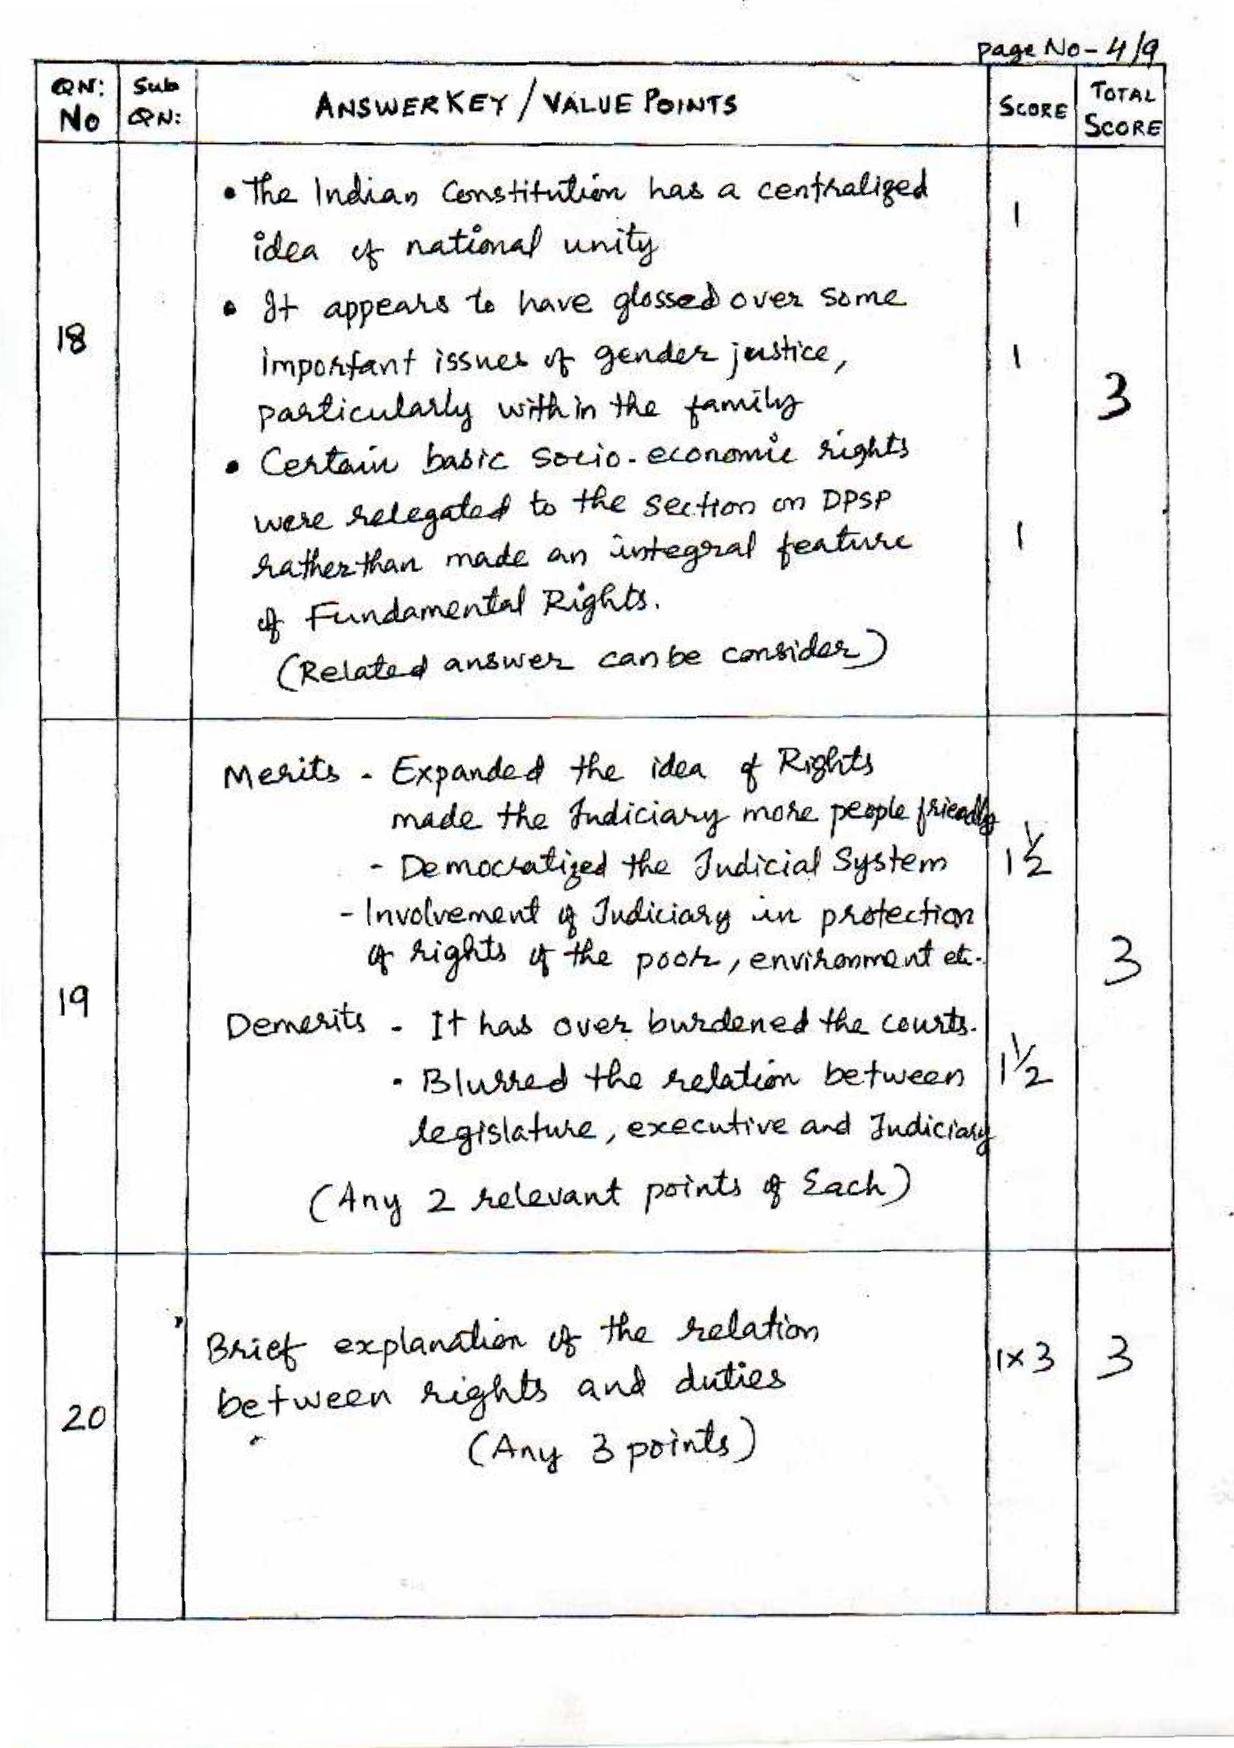 page No - 4/9
QN: No
Sub QN:
ANSWER KEY / VALUE POINTS
SCORE
TOTAL SCORE
18
• The Indian Constitution has a centralized
idea of national unity
1
• It appears to have glossed over some
important issues of gender justice,
particularly within the family
1
• Certain basic socio-economic rights
were relegated to the section on DPSP
rather than made an integral feature
of Fundamental Rights.
1
(Related answer can be consider)
3
19
Merits - Expanded the idea of Rights
made the Judiciary more people friendly
- Democratized the Judicial System
- Involvement of Judiciary in protection
of rights of the poor, environment etc.
1 1/2
Demerits - It has over burdened the courts.
- Blurred the relation between
legislature, executive and Judiciary
1 1/2
(Any 2 relevant points of Each)
3
20
Brief explanation of the relation
between rights and duties
(Any 3 points)
1 x 3
3